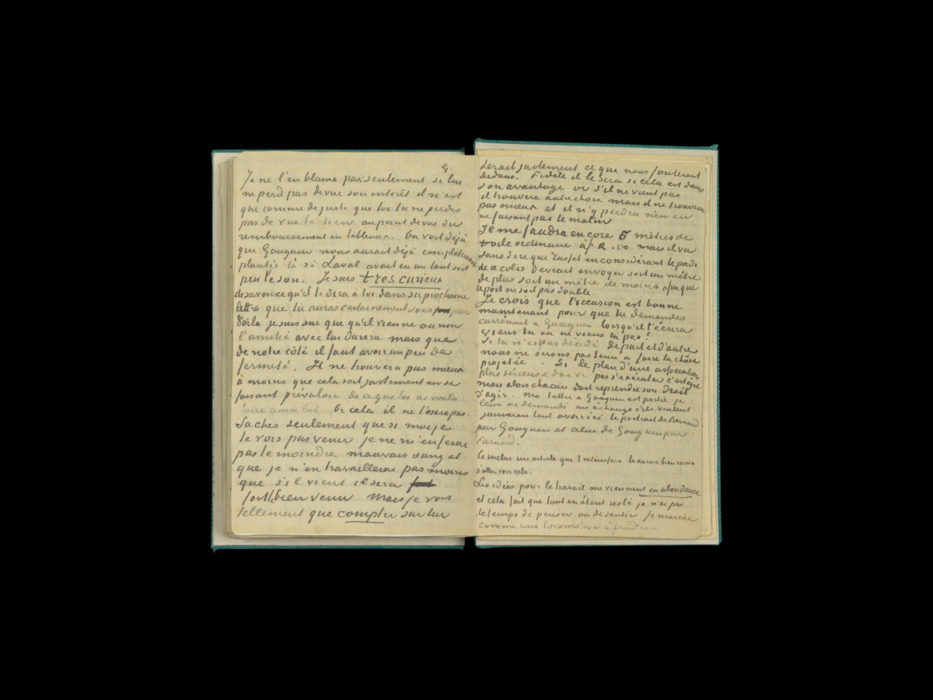 Je ne l'en blame pas seulement si lui
ne perd pas de vue son intérêt il n'est
que comme de juste que toi tu ne perdes
pas de vue le tien au point de vue du
remboursement en tableaux. On voit déjà
que Gauguin nous aurait déjà complètement
plantés là si Laval avait eu un tant soit
peu le son. Je suis très curieux
de savoir ce qu'il te dira à toi dans sa prochaine
lettre que tu auras certainement sous peu
Voilà je suis sur que qu'il vienne ou non
l'amitié avec lui durera mais que
de notre côté il faut avoir un peu de
fermeté. Il ne trouvera pas mieux
à moins que cela soit justement en se
faisant prévaloir de ce que tu as voulu
faire pour lui. Or cela il ne l'osera pas.
Saches seulement que si moi je
le vois pas venir je ne m'en ferai
pas le moindre mauvais sang et
que je n'en travaillerai pas moins
que s'il vient il sera
fort bien venu Mais je vois
tellement que compter sur lui
serait justement ce que nous foutrait
dedans. Fidèle il le sera si cela est dans
son avantage or s'il ne vient pas
il trouvera autre chose mais il ne trouvera
pas mieux et il n'y perdra rien en
ne faisant pas le malin
Je me faudra encore 5 mètres de
toile ordinaire à f 2.50 mais il va
sans dire que Tasset en considérant le poids
de a colis devrait envoyer soit un mètre
de plus soit un mètre de moins afin que
le port ne soit pas double
Je crois que l'occasion est bonne
maintenant pour que tu demandes
carrément à Gauguin lorsqu'il t'écrira
viens tu ou ne viens tu pas?
Si tu n'es pas décidé de part et d'autre
nous ne serons pas tenu à faire la chose
projetée. Si le plan d'une association
plus sérieuse doive pas s'exécuter c'est que
mais alors chacun doit reprendre son droit
d'agir. Ma lettre à Gauguin est partie je
leur ai demandé un echange s'ils veulent
j'aimerais tant avoir ici le portrait de Bernard
par Gauguin et celui de Gauguin par
Bernard.
Ci inclus un article que t'intéressera tu auras beau coup
d'aller voir cela.
Les idées pour le travail me viennent en abondance
et cela fait que tout en étant isolé je n'ai pas
le temps de penser ou de sentir je marche
comme une locomotive à peindre.